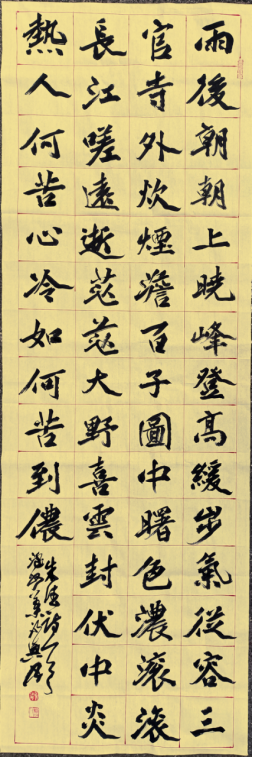 雨後朝朝上曉峰登高緩步氣從容三
官寺外炊煙澹百子圖中曙色濃滾滾
長江嗟遠逝茫茫大野喜雲封伏中炎
熱人何苦心冷如何苦到儂